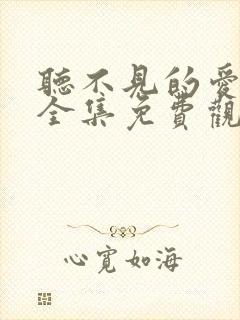 聽不見的愛
全集免費觀
心寬如海